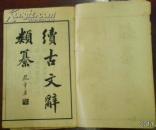 續古文辭
類纂